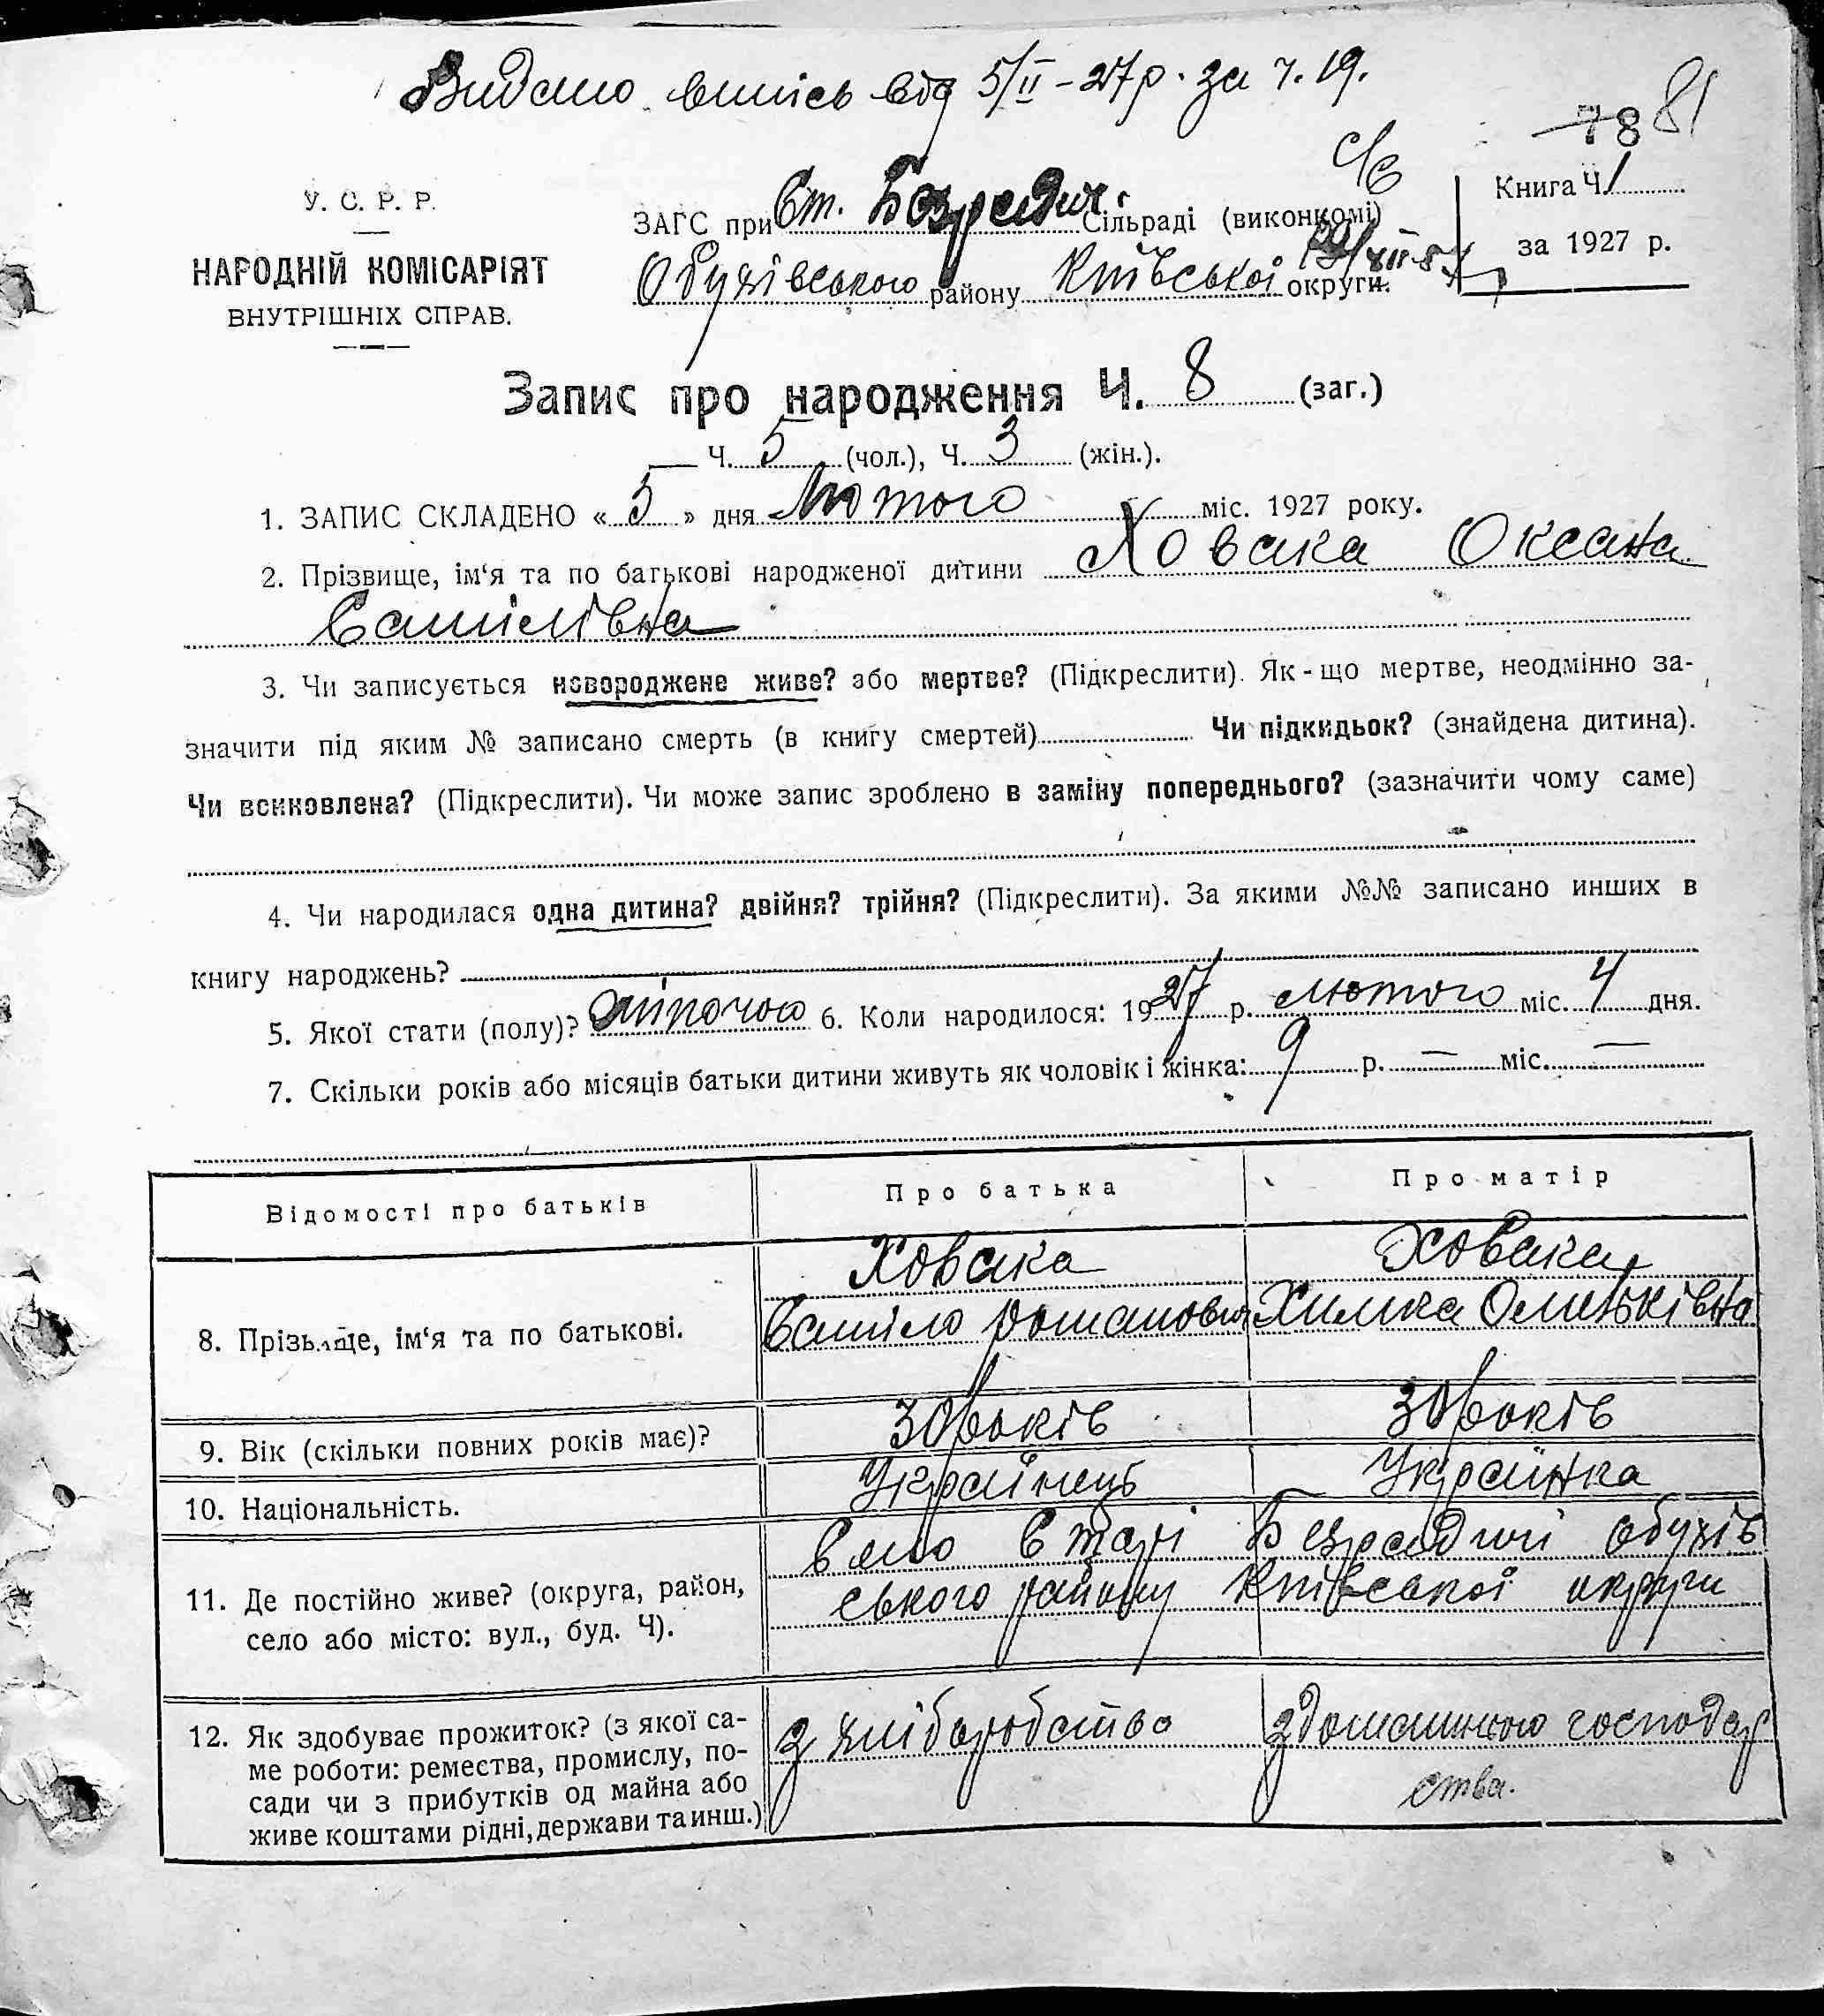 Видано випись від 5/II – 27 р. за ч. 19.
78 81
У. С. Р. Р.
НАРОДНІЙ КОМІСАРІЯТ
ВНУТРІШНІХ СПРАВ.
ЗАГС при Ст. Безрадич. Сільраді (виконкомі)
с/б
Обухівського району Київської округи.
Книга Ч. 1
за 1927 р.
Запис про народження Ч. 8 (заг.)
Ч. 5 (чол.), Ч. 3 (жін.).
1. ЗАПИС СКЛАДЕНО « 5 » дня Лютого міс. 1927 року.
2. Прізвище, ім‘я та по батькові народженої дитини Ховака Оксана
Василівна
3. Чи записується новороджене живе? або мертве? (Підкреслити). Як-що мертве, неодмінно за-
значити під яким № записано смерть (в книгу смертей) Чи підкидьок? (знайдена дитина).
Чи всиновлена? (Підкреслити). Чи може запис зроблено в заміну попереднього? (зазначити чому саме)
4. Чи народилася одна дитина? двійня? трійня? (Підкреслити). За якими №№ записано инших в
книгу народжень?
5. Якої стати (полу)? жіночою 6. Коли народилося: 1927 р. лютого міс. 4 дня.
7. Скільки років або місяців батьки дитини живуть як чоловік і жінка: 9 р. — міс. —
Відомості про батьків
Про батька
Про матір
8. Прізвище, ім‘я та по батькові.
Ховака
Василь Романович
Ховака
Химка Омельківна
9. Вік (скільки повних років має)?
30 років
30 років
10. Національність.
Українець
Українка
11. Де постійно живе? (округа, район,
село або місто: вул., буд. Ч).
село Старі Безрадичі Обухів
ського району Київської округи
12. Як здобуває прожиток? (з якої са-
ме роботи: ремества, промислу, по-
сади чи з прибутків од майна або
живе коштами рідні, держави та инш.)
з хліборобства
з домашнього господар
ства.